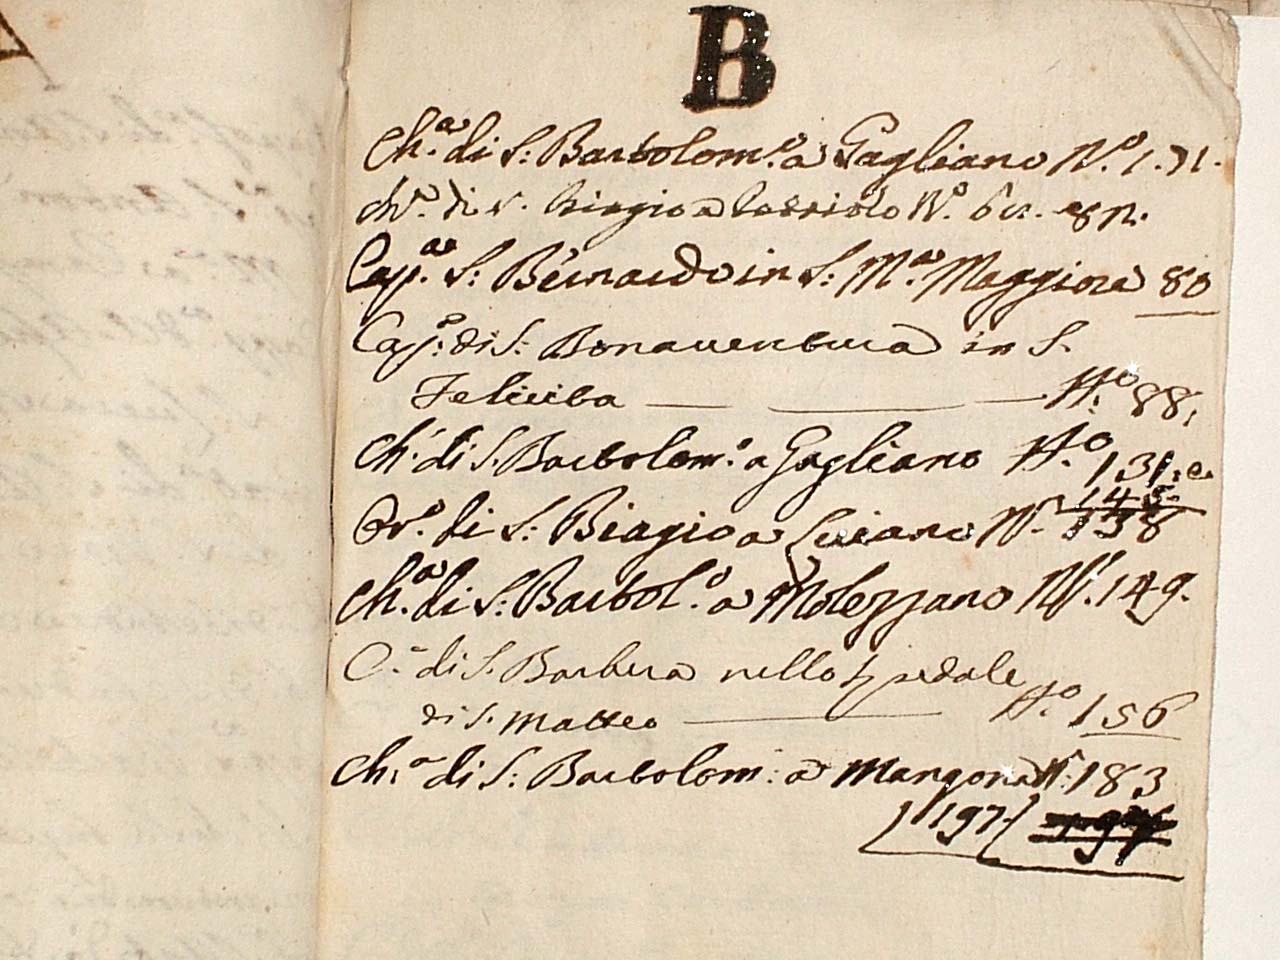 B
Ch.a di S: Bartolom.o a Gagliano N.o 1. 71.
Ch.a di S. Biagio a N.o 61. e 82.
Capp.a S: Bernardo in S: M.a Maggiore 80
Capp.a di S: Bonaventura in S.
Felicita — — N.o 88.
Ch.a di S. Bartolom.o a Gagliano N.o 131.
Or.o di S: Biagio a N. 138
Ch.a di S: Bartol.o a Molezzano N. 149.
C.a di S. Barbera nello Spedale
di S. Matteo — N.o 156
Ch.a di S: Bartolom: a Mangona N. 183
197